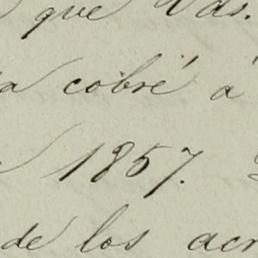 que Vds.
cobré á
1857.
de los acr